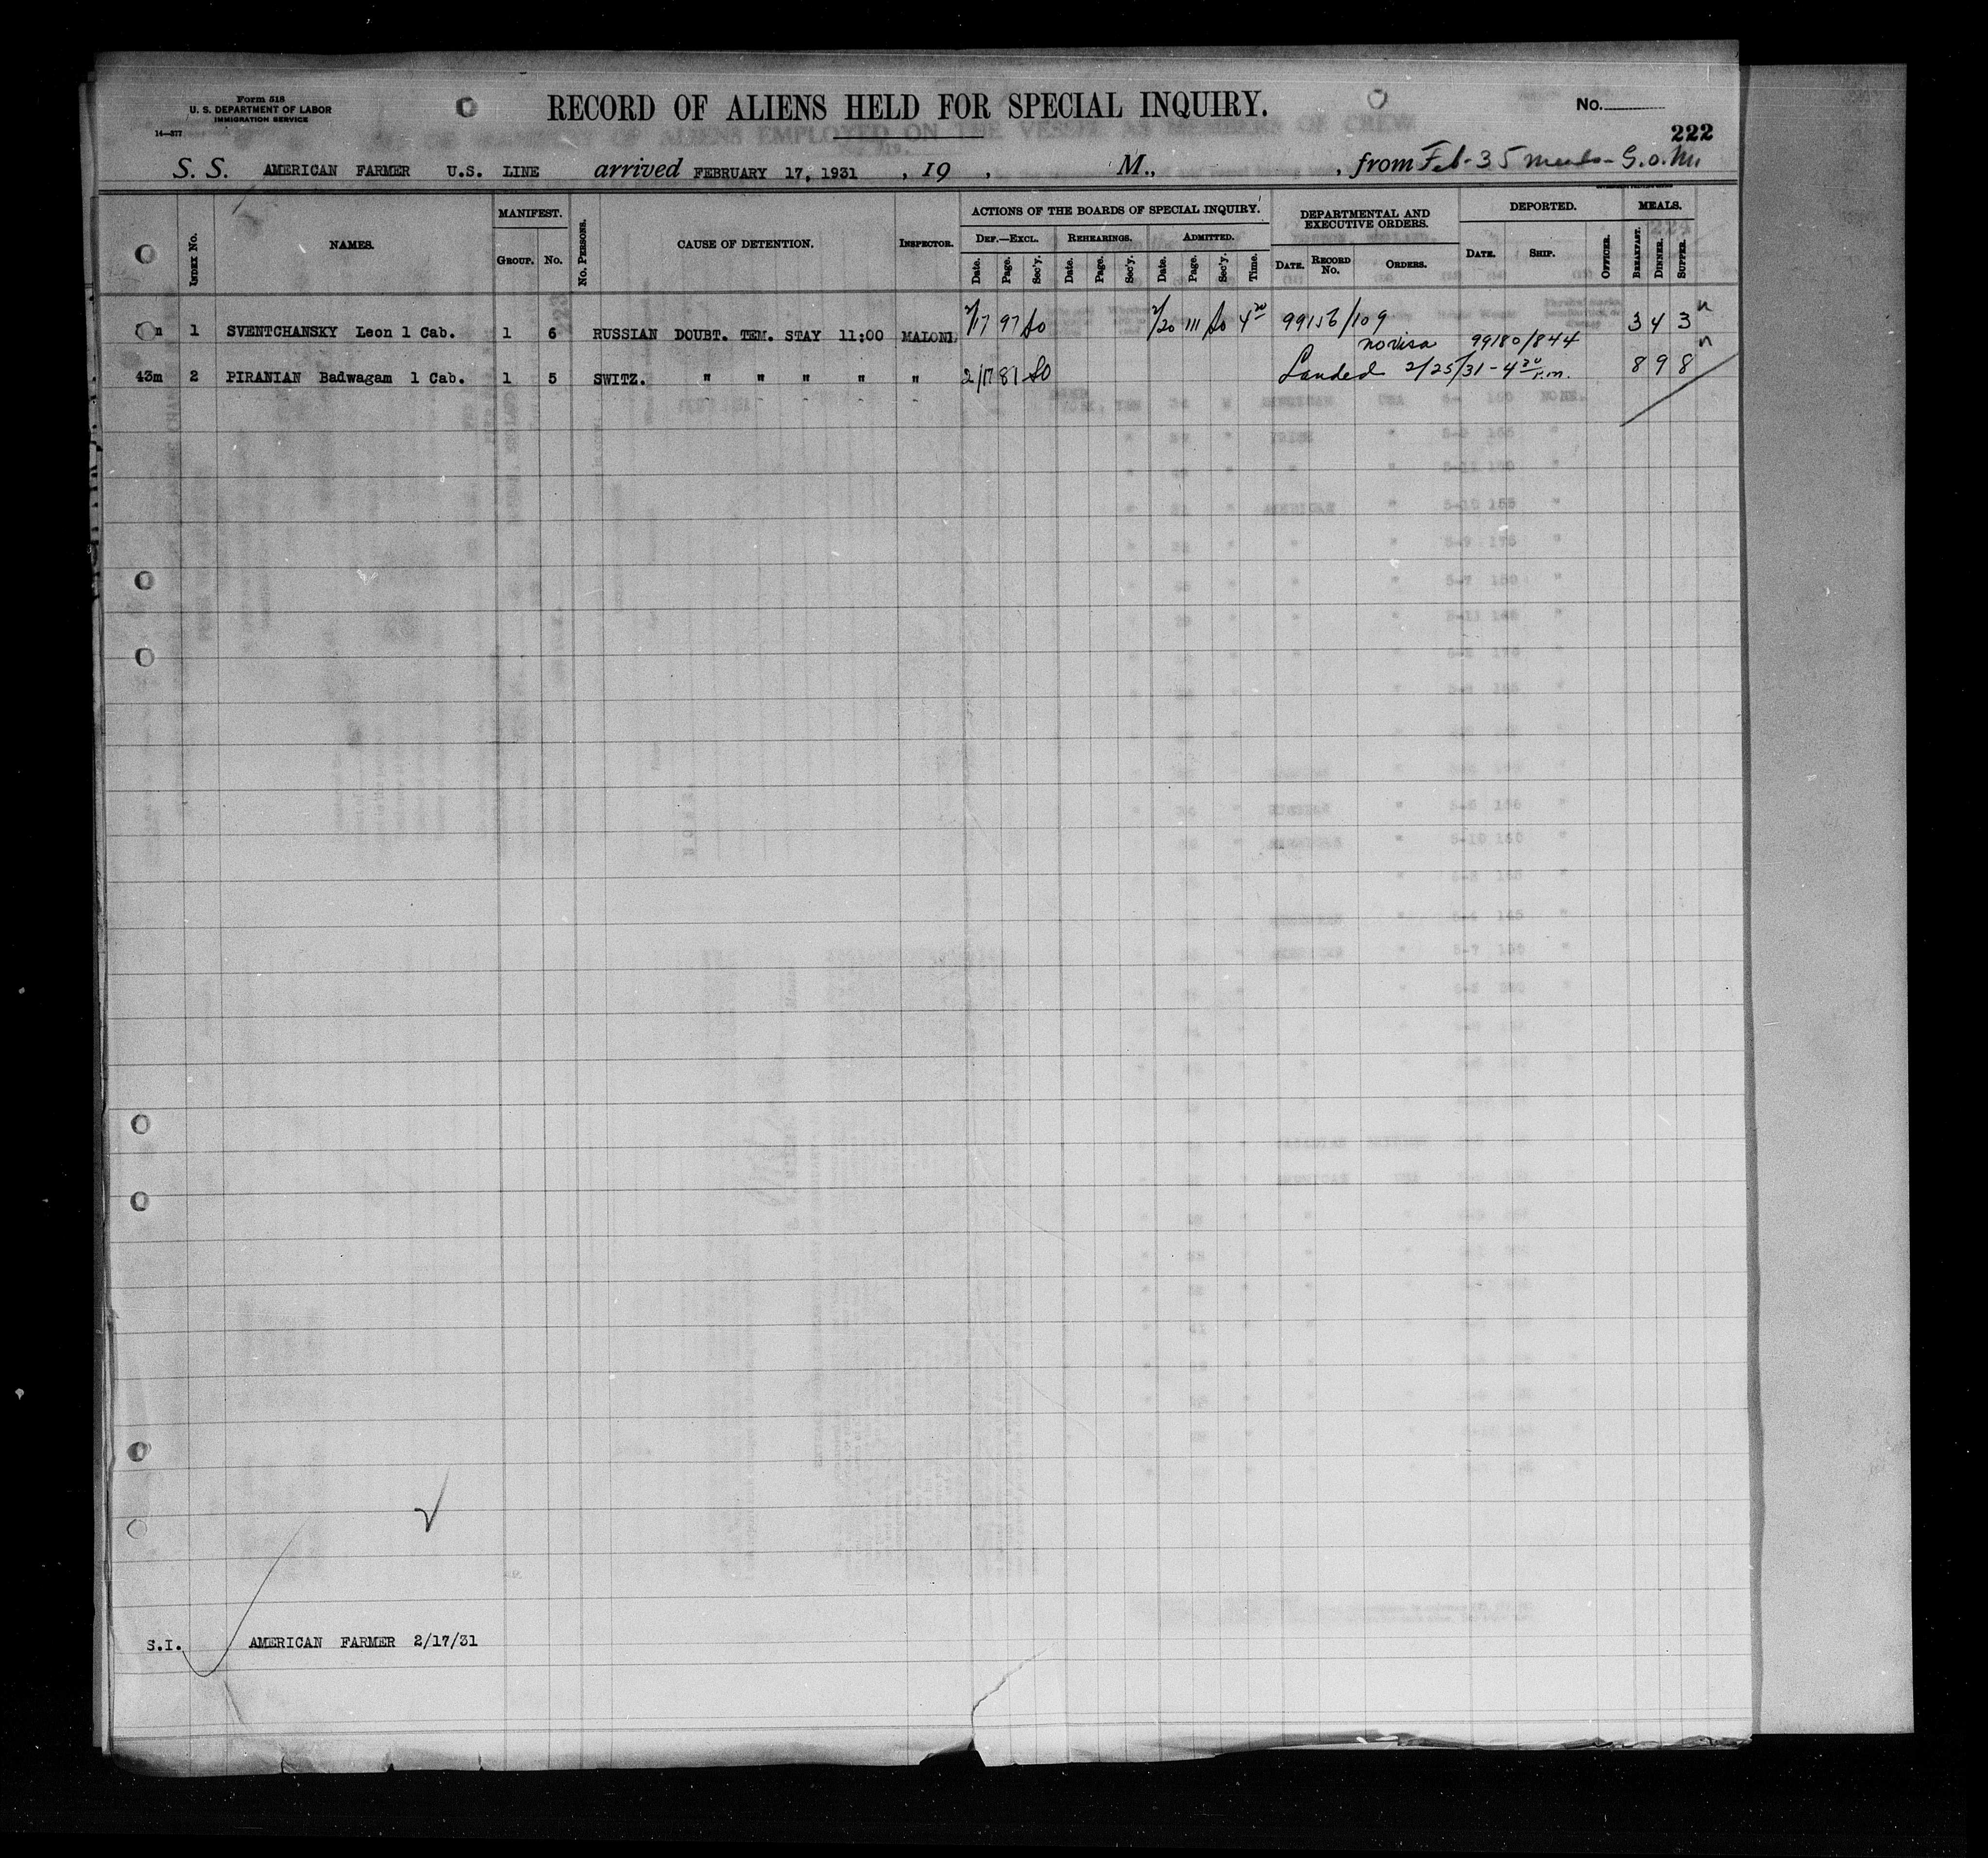 Form 518
U. S. DEPARTMENT OF LABOR
IMMIGRATION SERVICE
14—377
RECORD OF ALIENS HELD FOR SPECIAL INQUIRY.
No.
222
S. S. AMERICAN FARMER U.S. LINE arrived FEBRUARY 17, 1931 , 19 , M., , from Feb - 35 meals - G.O.M.
Index No.
NAMES.
MANIFEST.
Group. No.
No. Persons.
CAUSE OF DETENTION.
Inspector.
ACTIONS OF THE BOARDS OF SPECIAL INQUIRY.
Def.—Excl. Rehearings. Admitted.
Date. Page. Sec'y. Date. Page. Sec'y. Date. Page. Sec'y. Time.
DEPARTMENTAL AND EXECUTIVE ORDERS.
Date. Record No. Orders.
DEPORTED.
Date. Ship. Officer.
MEALS.
Breakfast. Dinner. Supper.
1 SVENTCHANSKY Leon 1 Cab. 1 6 RUSSIAN DOUBT. TEM. STAY 11:00 MALONE 2/17 97 2/20 111 4 20 99156/109 3 4 3
no visa 99180/844
43m 2 PIRANIAN Badwagam 1 Cab. 1 5 SWITZ. " " " " " 2/17 81 Landed 2/25/31 - 4 30 P.m. 8 9 8
S.I. AMERICAN FARMER 2/17/31